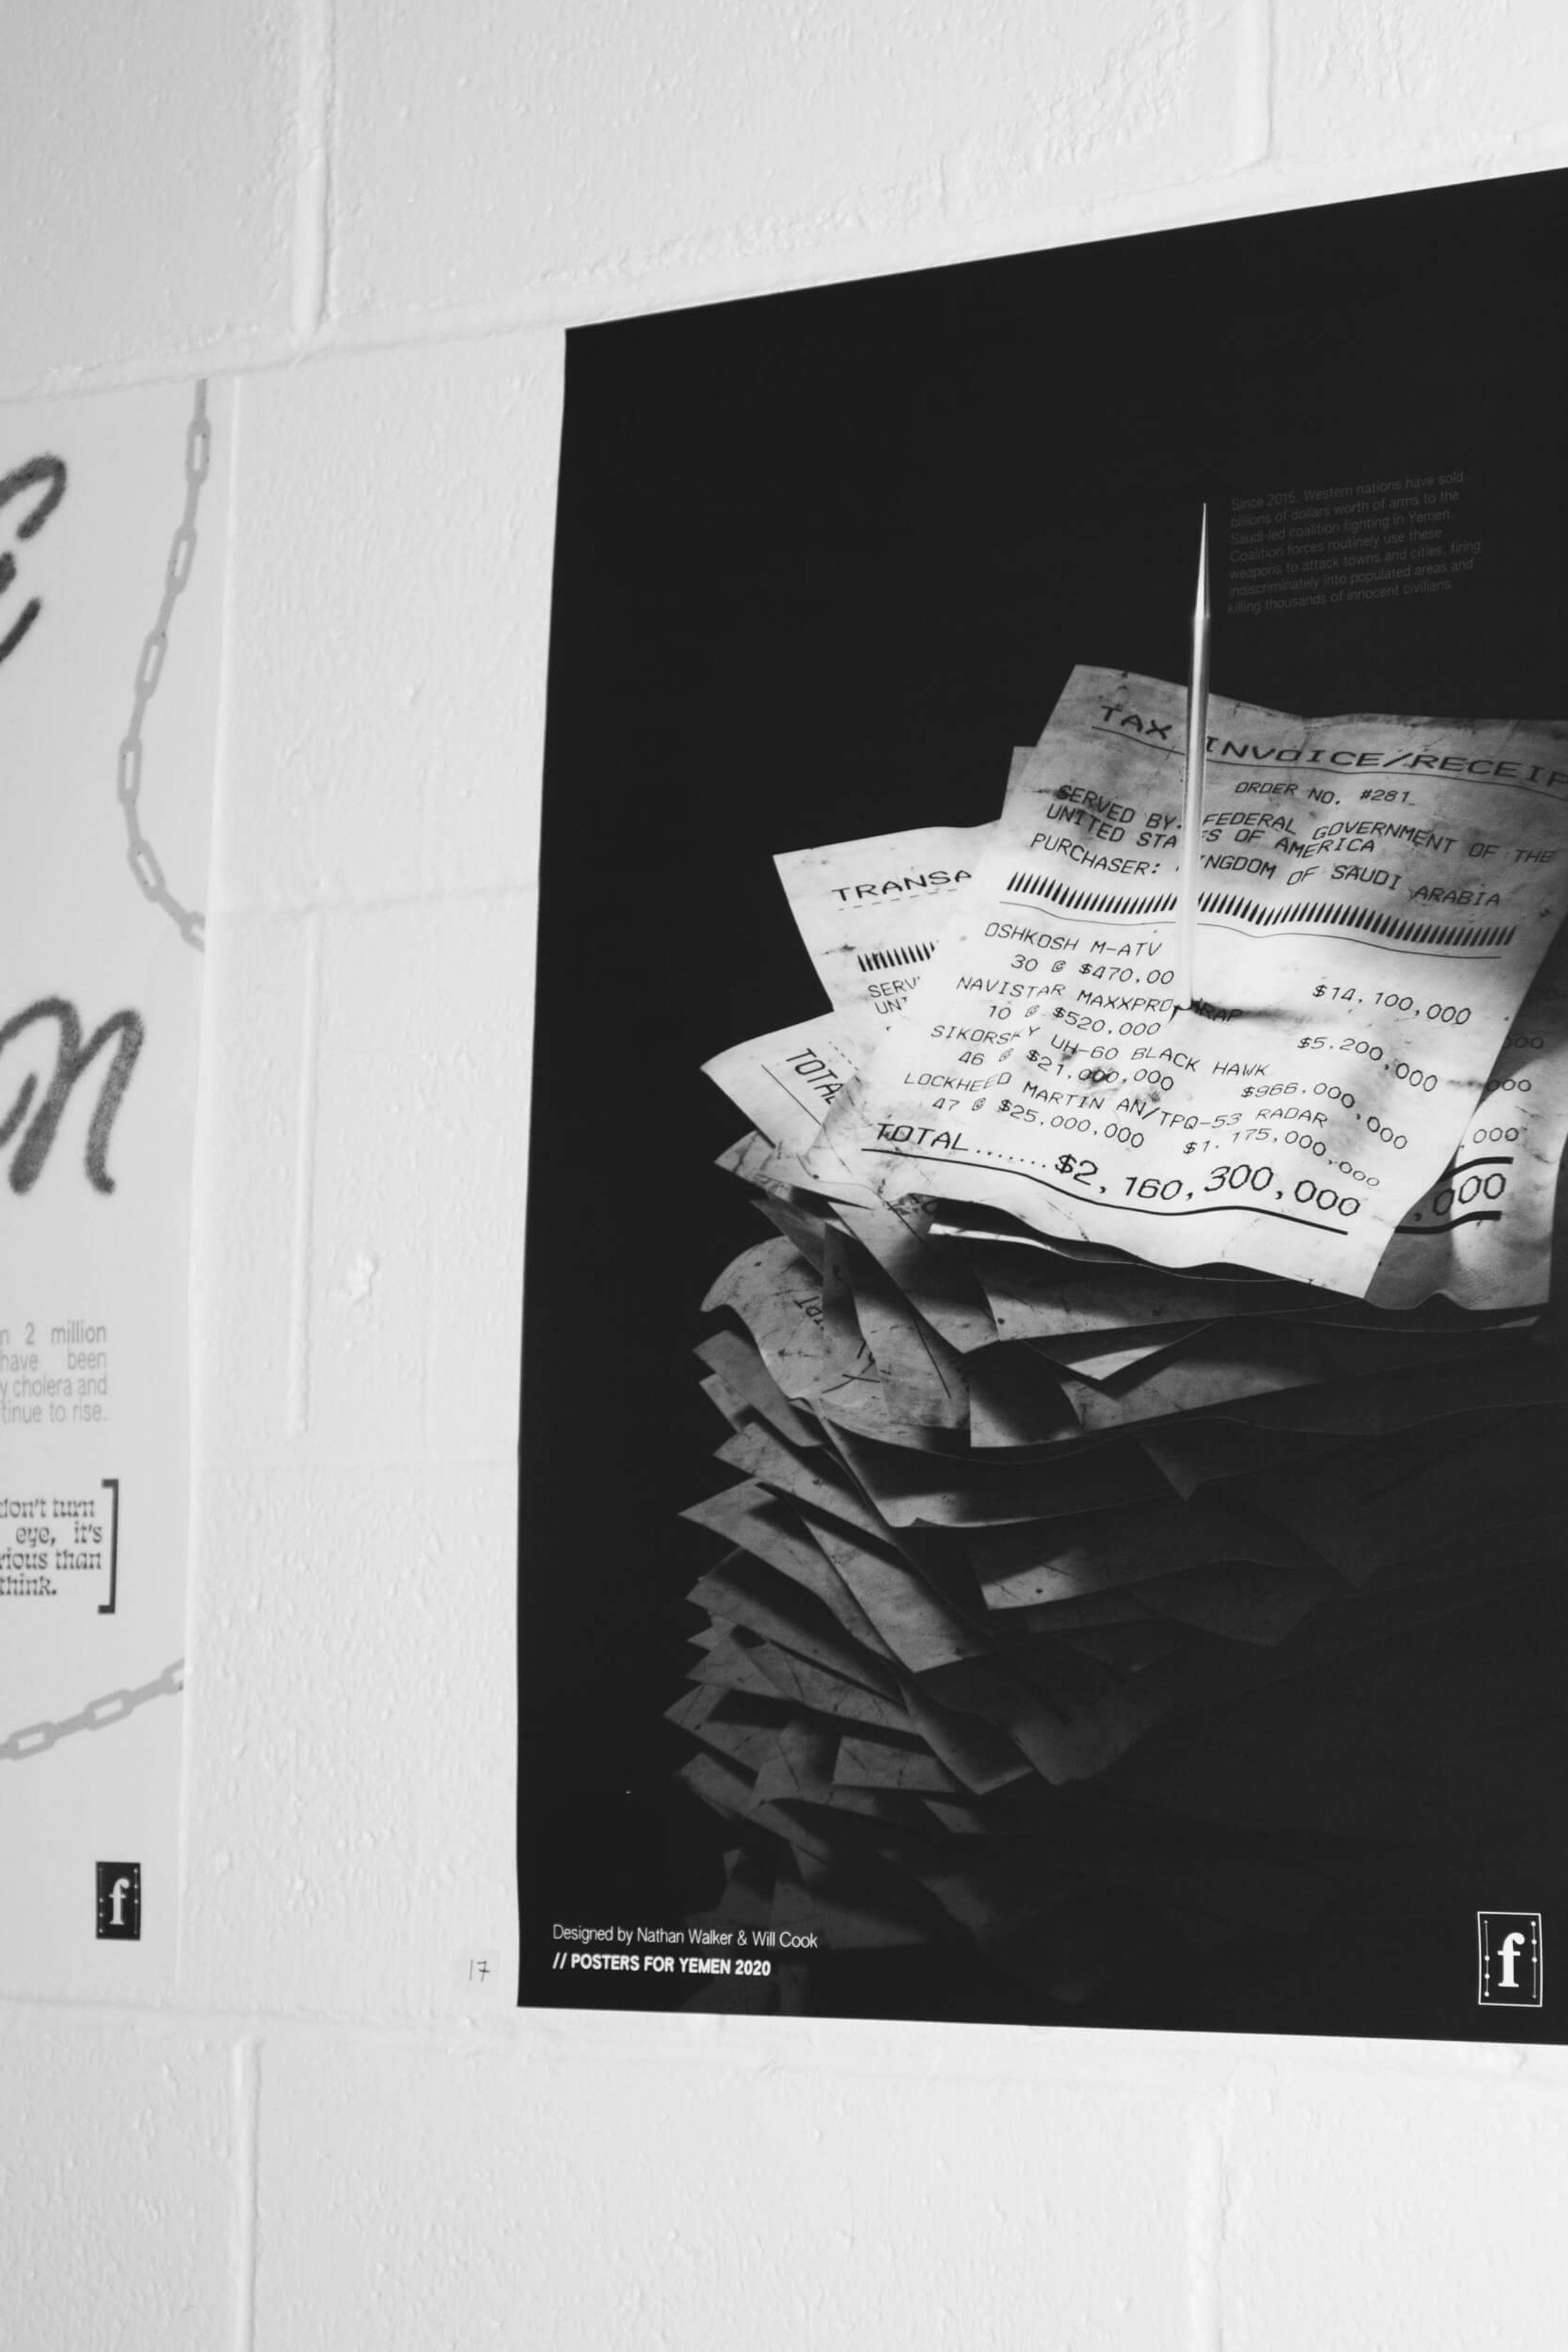 n 2 million
have been
y cholera and
tinue to rise.
don't turn
eye, it's
rious than
think.
f
17
Since 2015, Western nations have sold
billions of dollars worth of arms to the
Saudi-led coalition fighting in Yemen.
Coalition forces routinely use these
weapons to attack towns and cities, firing
indiscriminately into populated areas and
killing thousands of innocent civilians.
TAX INVOICE/RECEIP
ORDER NO. #281
SERVED BY: FEDERAL GOVERNMENT OF THE
UNITED STATES OF AMERICA
PURCHASER: KINGDOM OF SAUDI ARABIA
OSHKOSH M-ATV
30 @ $470,00 $14,100,000
NAVISTAR MAXXPRO MRAP
10 @ $520,000 $5,200,000
SIKORSKY UH-60 BLACK HAWK
46 @ $21,000,000 $966,000,000
LOCKHEED MARTIN AN/TPQ-53 RADAR
47 @ $25,000,000 $1,175,000,000
TOTAL.......$2,160,300,000
TRANSA
SERV
UN
TOTAL
000
000
,000
,000
Designed by Nathan Walker & Will Cook
// POSTERS FOR YEMEN 2020
f